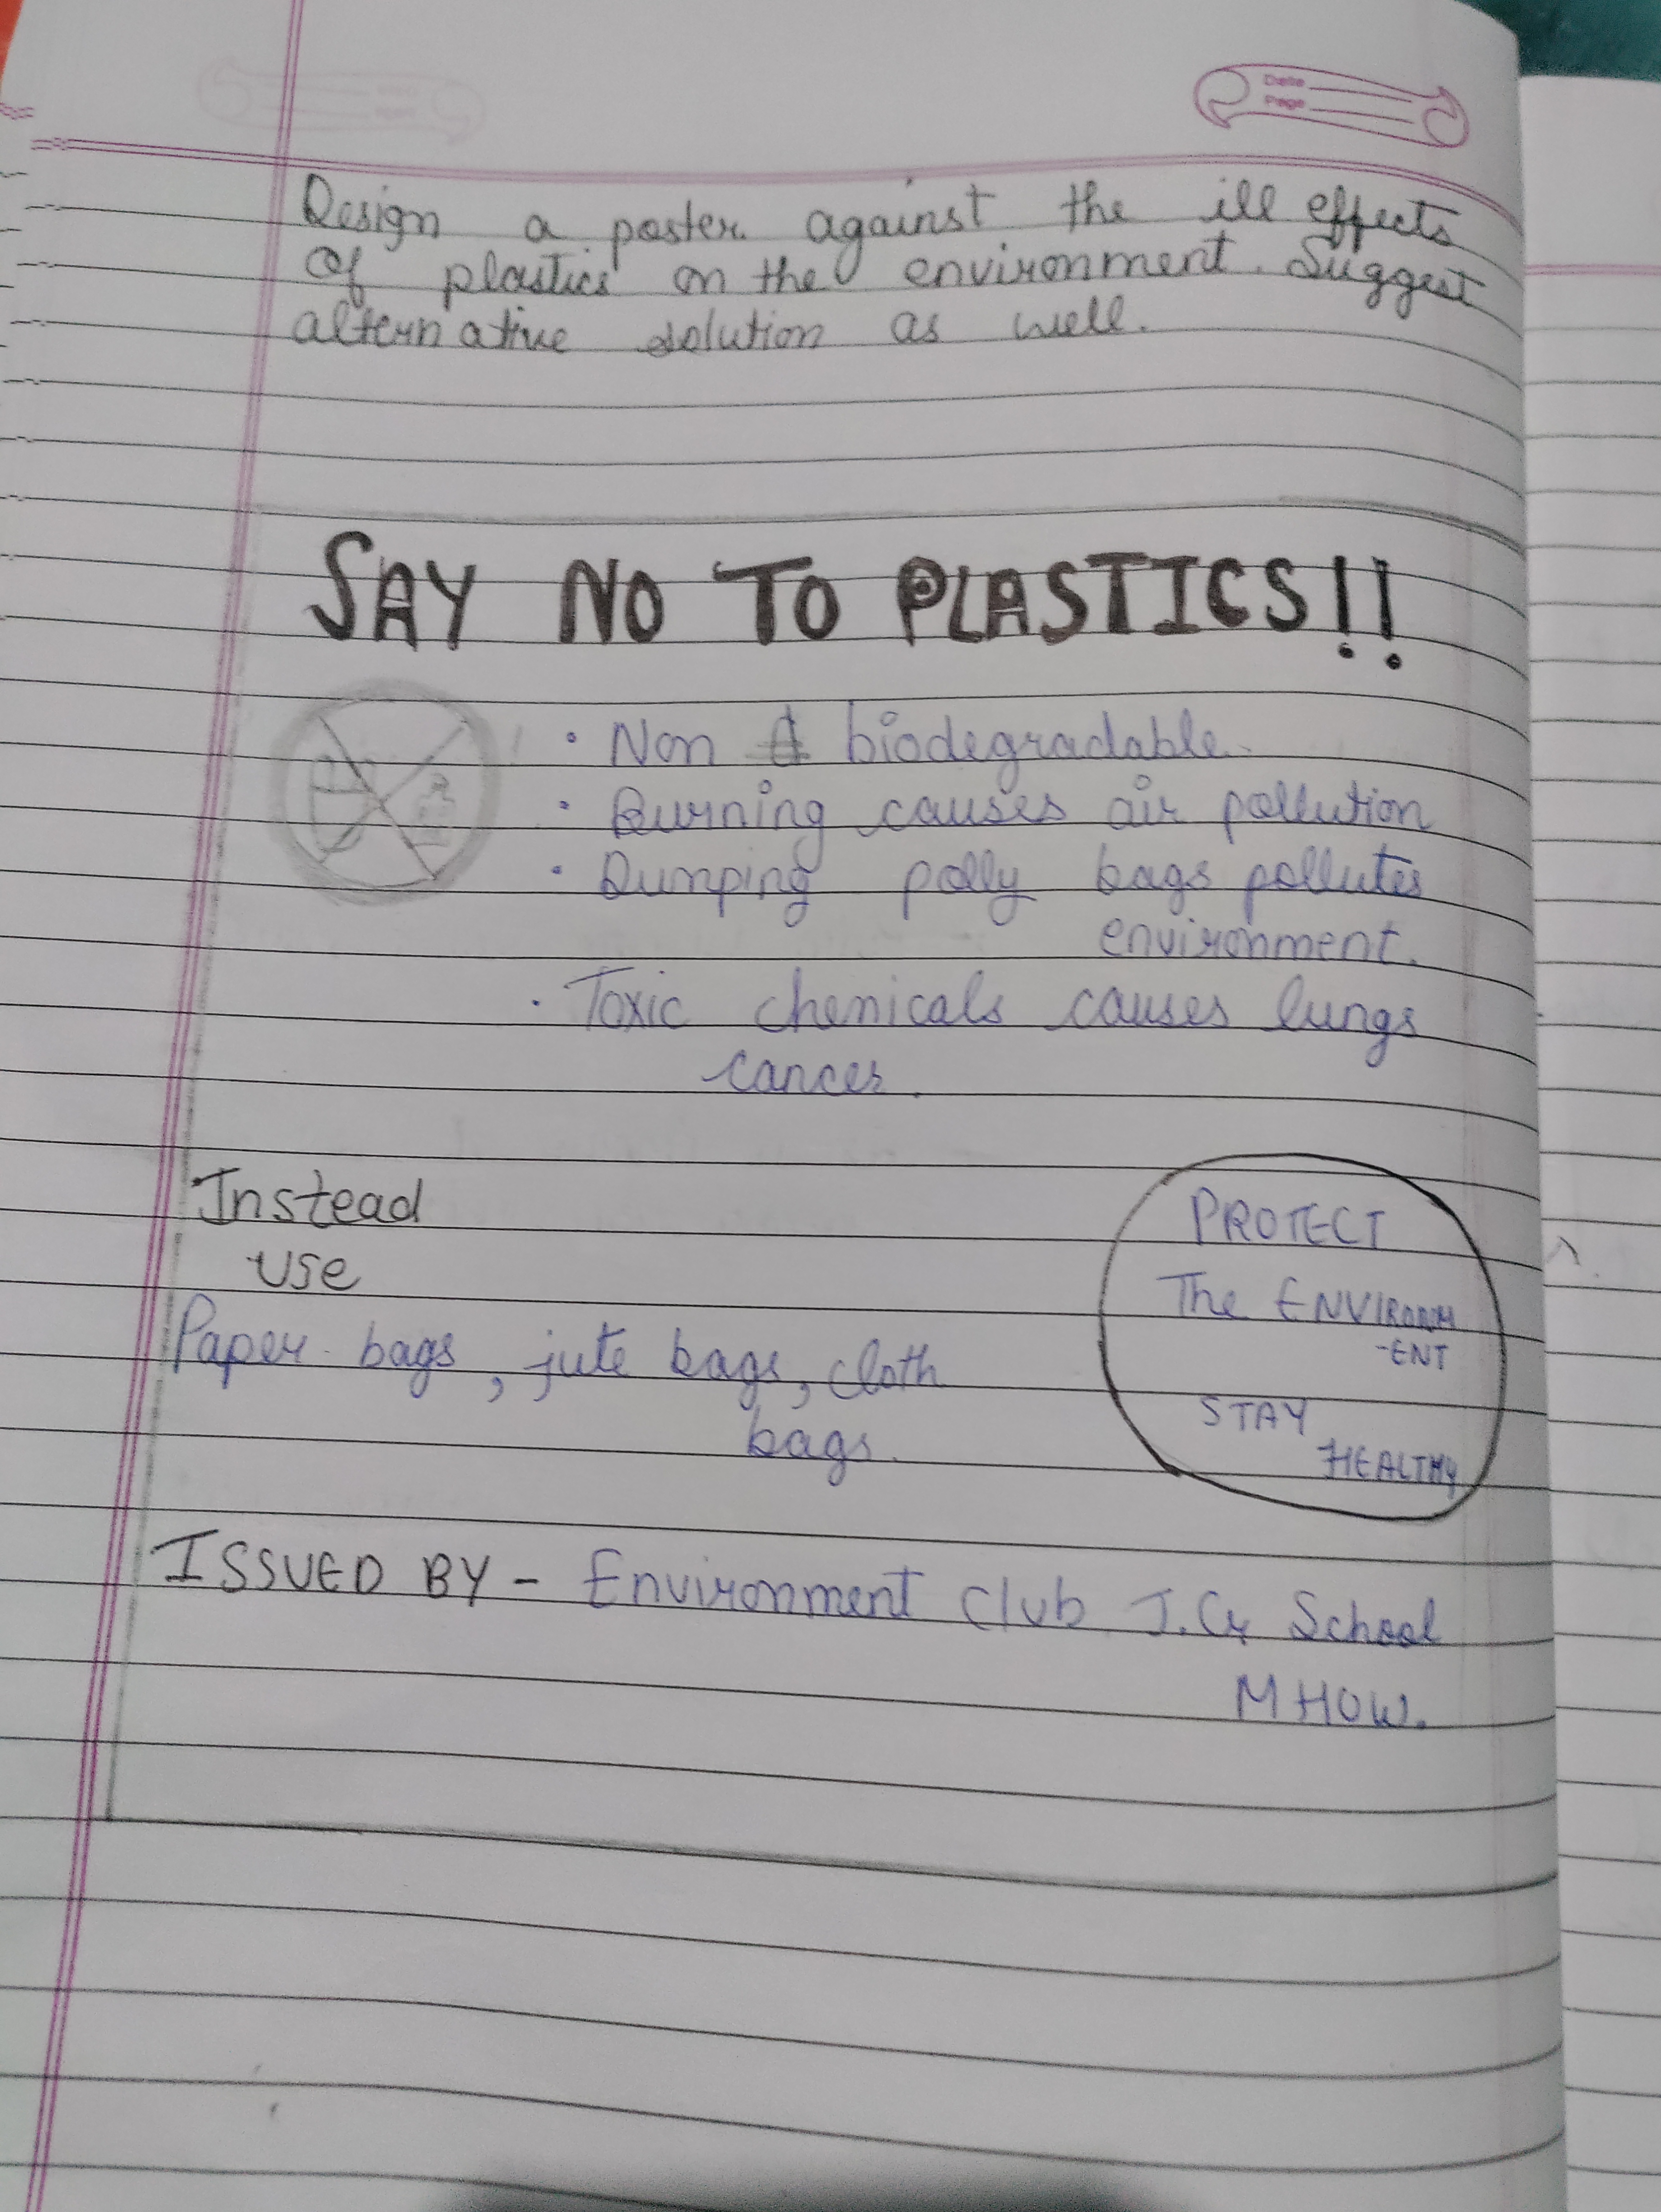 Date
Page
Design a poster against the ill effects
of plastics on the environment. Suggest
alternative solution as well.
SAY NO TO PLASTICS!!
• Non biodegradable.
• Burning causes air pollution
• Dumping polly bags pollutes
environment.
• Toxic chemicals causes lungs
cancer.
Instead
use
Paper bags, jute bags, cloth
bags.
PROTECT
The ENVIRONM
-ENT
STAY
HEALTHY
ISSUED BY - Environment Club J.C. School
MHOW.